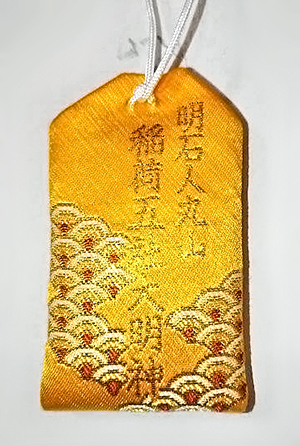 明石人丸山
稲荷五社大明神